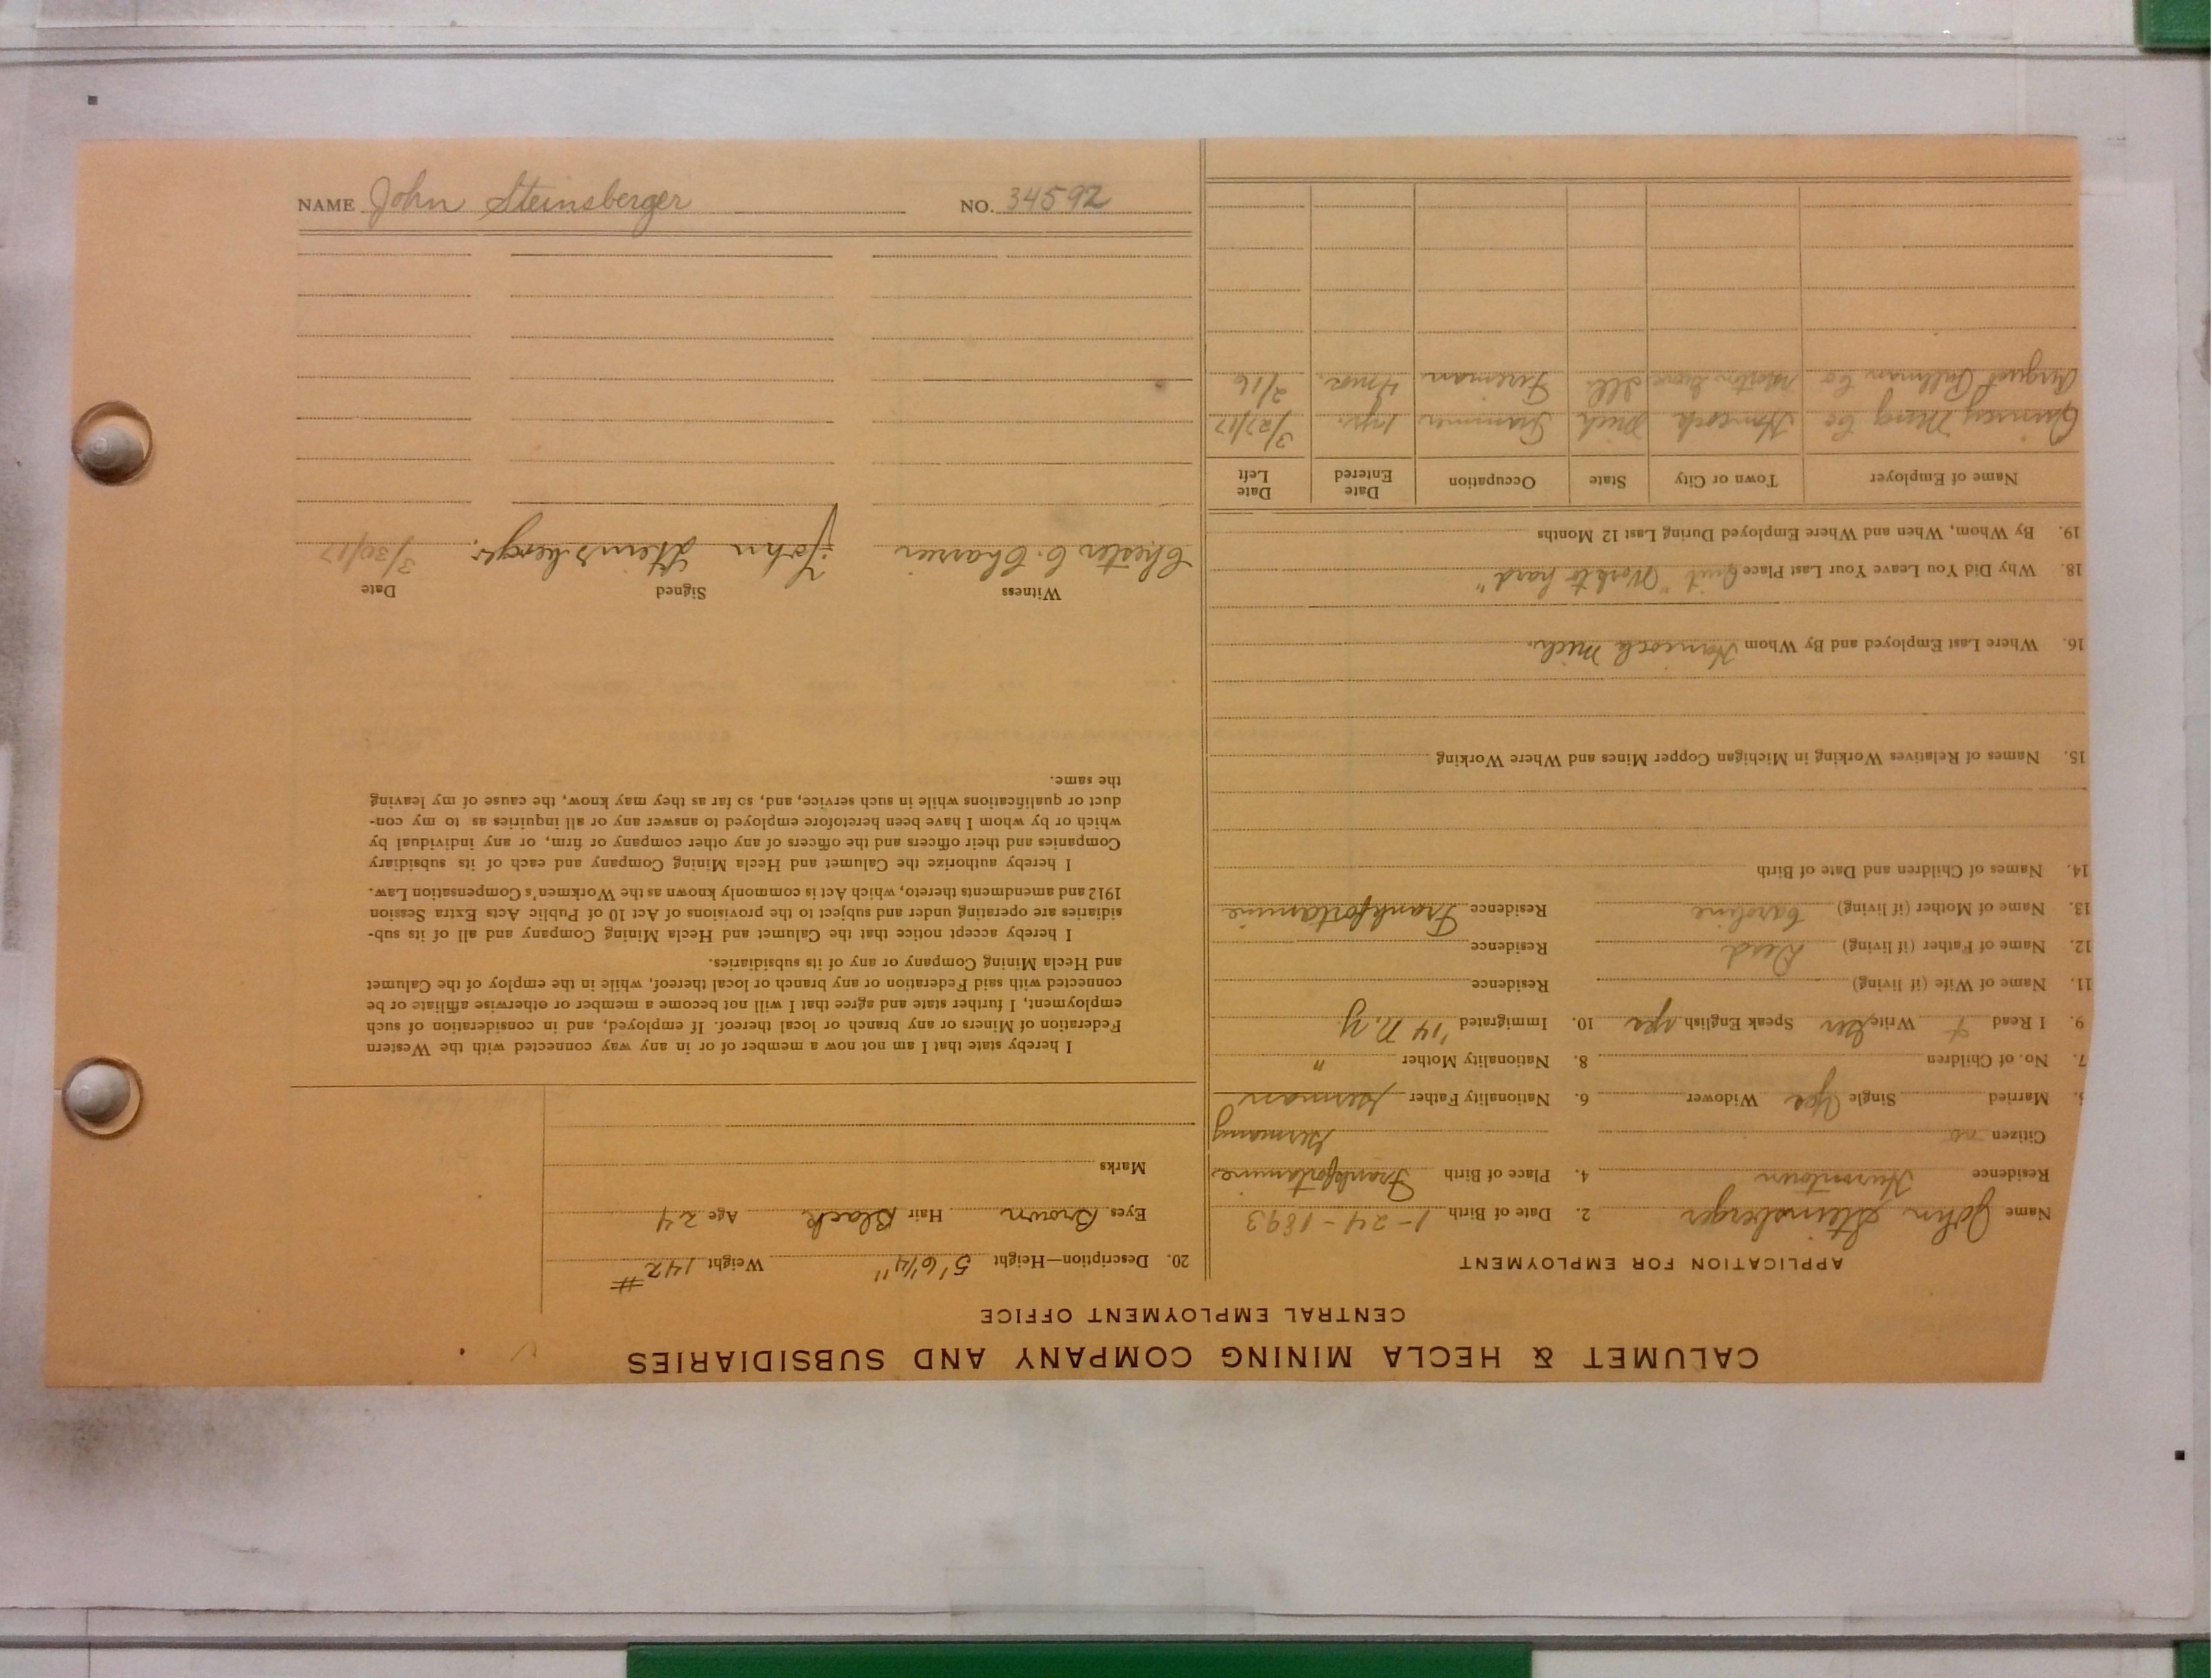 CALUMET & HECLA MINING COMPANY AND SUBSIDIARIES
CENTRAL EMPLOYMENT OFFICE
APPLICATION FOR EMPLOYMENT
Name John Steinsberger 2. Date of Birth 1-24-1893
Residence Hurontown 4. Place of Birth Frankfortamine
Citizen no Germany
5. Married Single Yes Widower 6. Nationality Father German
7. No. of Children 8. Nationality Mother "
9. I Read & Write Ger Speak English yes 10. Immigrated '14 N.Y
11. Name of Wife (if living) Residence
12. Name of Father (if living) Dead Residence
13. Name of Mother (if living) Caroline Residence Frankfortamine
14. Names of Children and Date of Birth
15. Names of Relatives Working in Michigan Copper Mines and Where Working
16. Where Last Employed and By Whom Hancock Mich.
18. Why Did You Leave Your Last Place Quit "Work to hard"
19. By Whom, When and Where Employed During Last 12 Months
Name of Employer Town or City State Occupation Date Entered Date Left
Quincy Mng Co Hancock Mich Trammer 1 yr. 3/27/17
Pullman Co Ill. Fireman 4 mos. 2/16
20. Description—Height 5' 6 1/4" Weight 142 #
Eyes Brown Hair Black Age 24
Marks
I hereby state that I am not now a member of or in any way connected with the Western
Federation of Miners or any branch or local thereof. If employed, and in consideration of such
employment, I further state and agree that I will not become a member or otherwise affiliate or be
connected with said Federation or any branch or local thereof, while in the employ of the Calumet
and Hecla Mining Company or any of its subsidiaries.
I hereby accept notice that the Calumet and Hecla Mining Company and all of its sub-
sidiaries are operating under and subject to the provisions of Act 10 of Public Acts Extra Session
1912 and amendments thereto, which Act is commonly known as the Workmen's Compensation Law.
I hereby authorize the Calumet and Hecla Mining Company and each of its subsidiary
Companies and their officers and the officers of any other company or firm, or any individual by
which or by whom I have been heretofore employed to answer any or all inquiries as to my con-
duct or qualifications while in such service, and, so far as they may know, the cause of my leaving
the same.
Witness Signed Date
Chester C. John Steinsberger. 3/30/17
NAME John Steinsberger NO. 34592